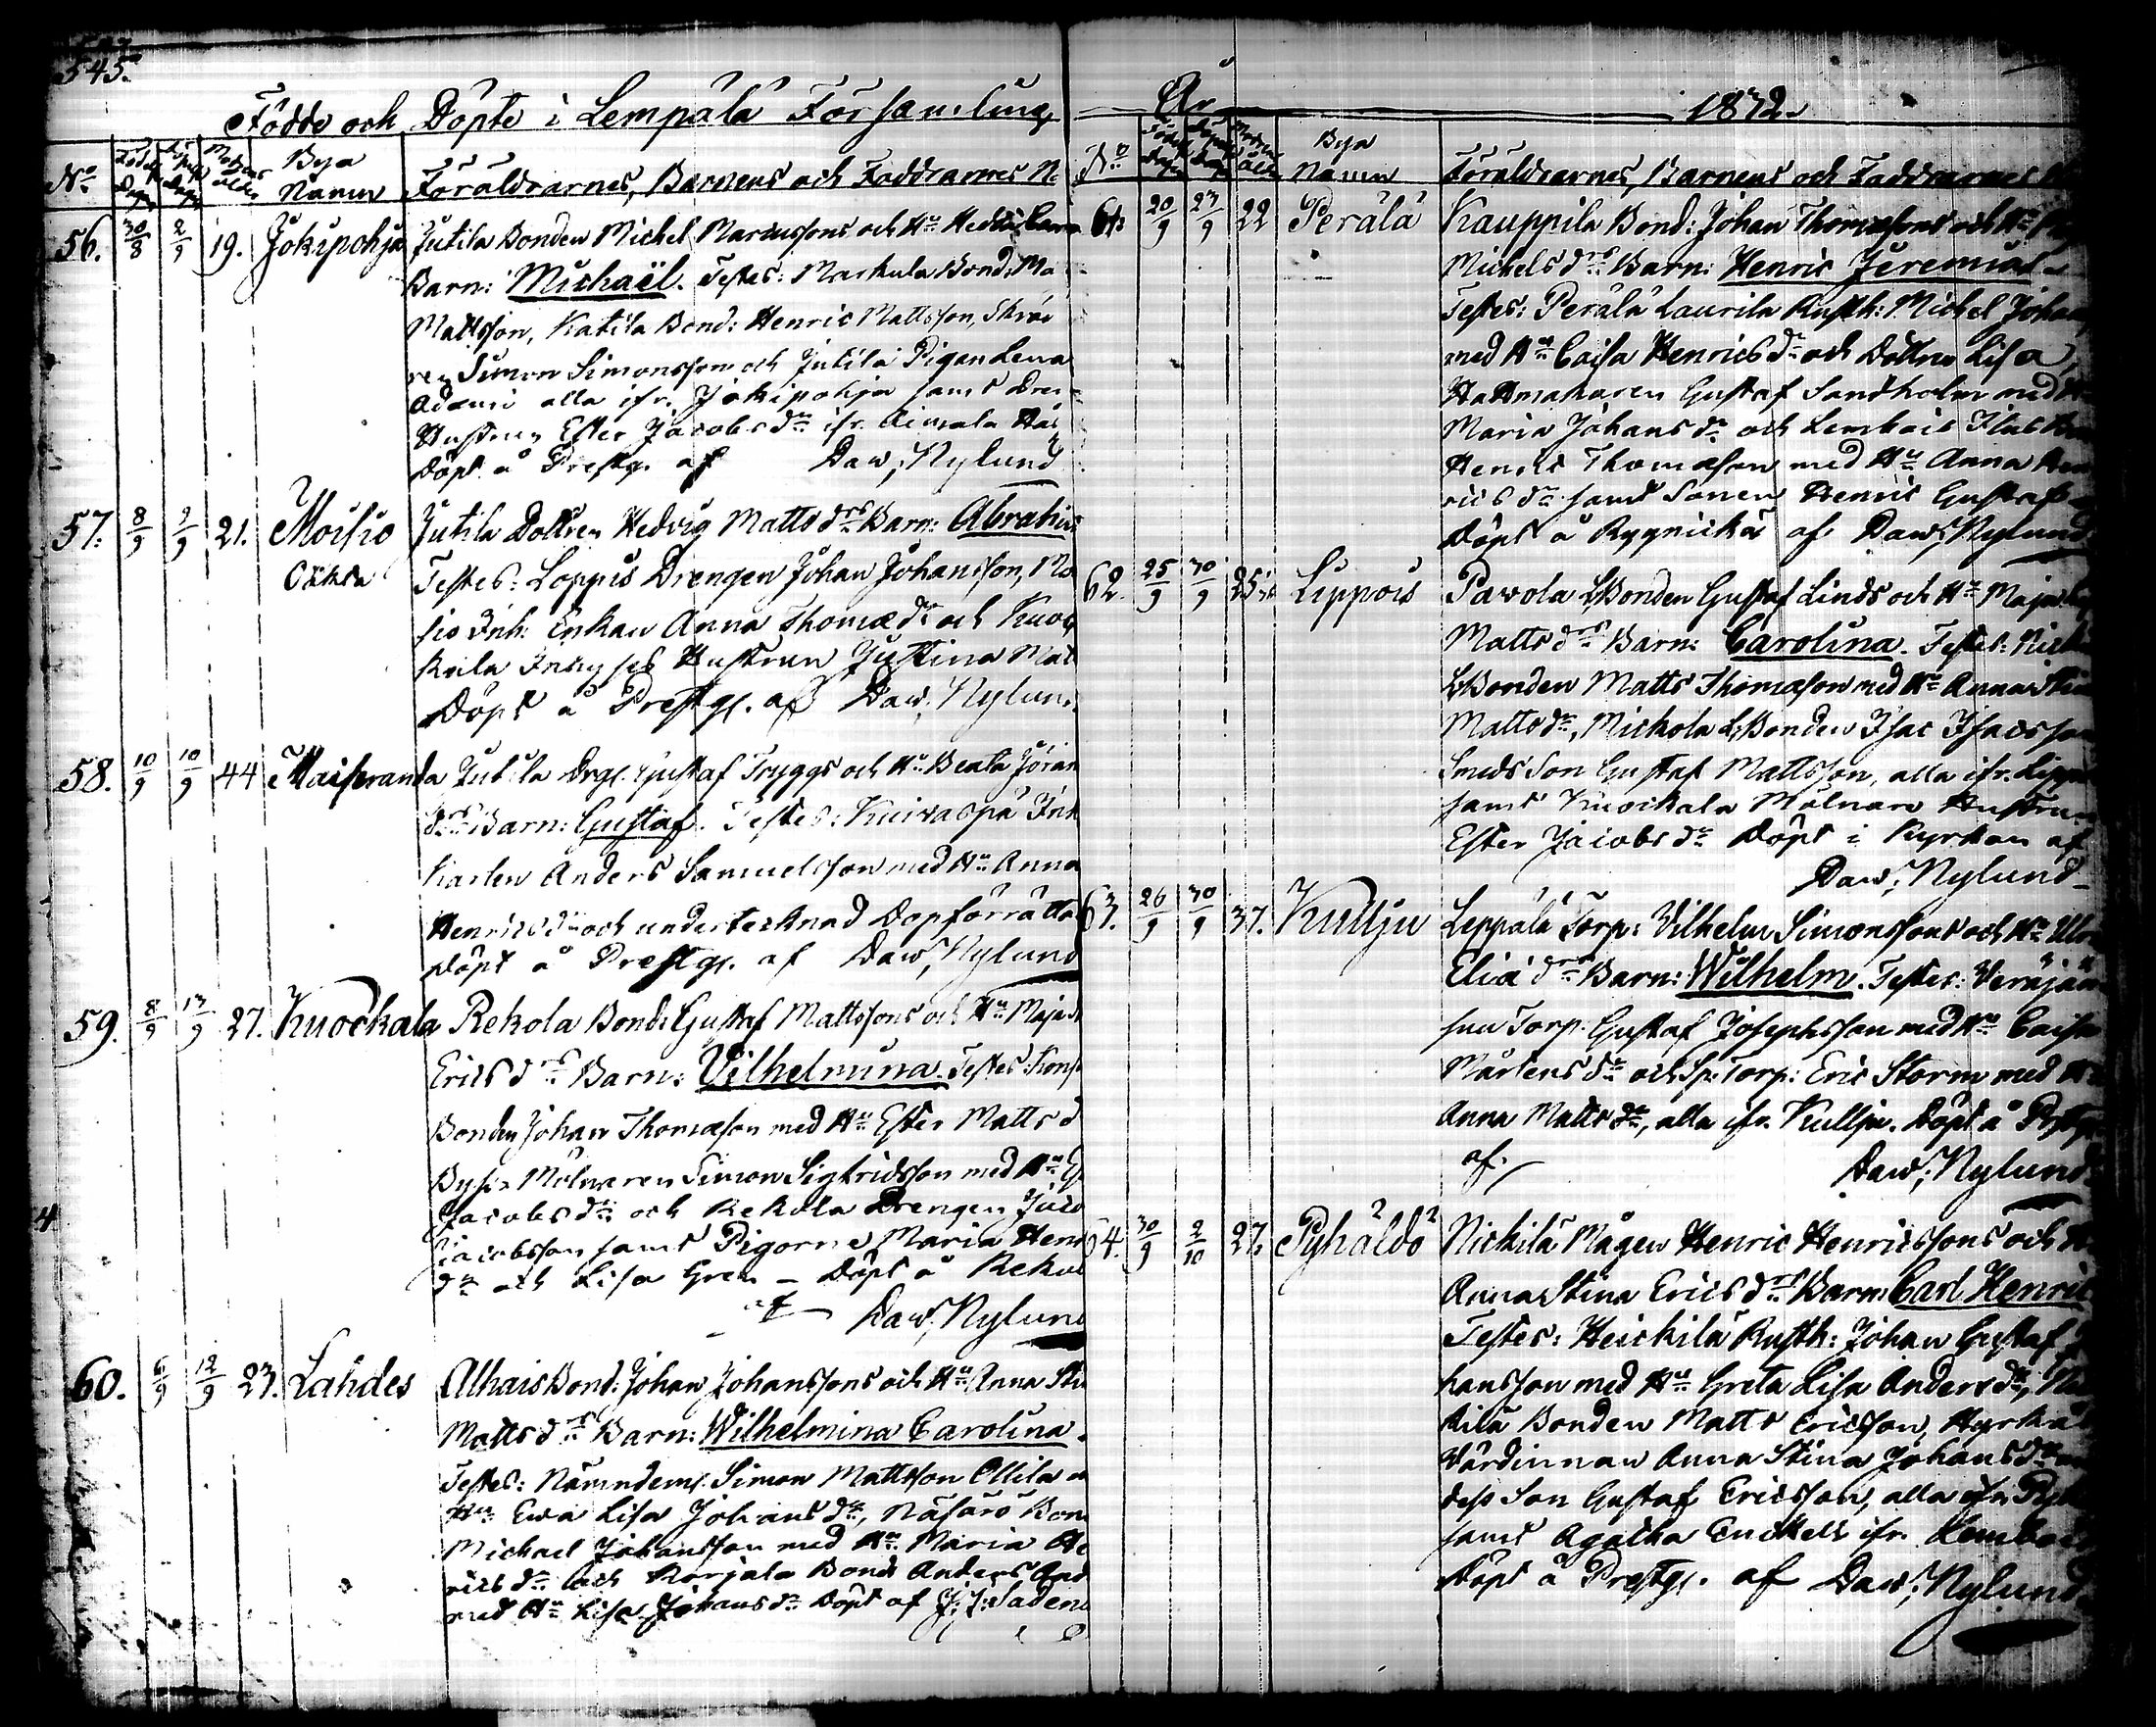 545.
Födde och Döpte i Lempälä Församling
No Födelse Dagen Döpelse Dagen Modrens ålder Bya Namn Föräldrarnes, Barnens och Faddrarnes
56. 30/8 2/9 19. Jokipohja Jutila Bonden Michel Marcussons och Hu Hedda
Barn: Michaël. Testes: Markula Bond: Ma
Mattsson, Katila Bond: Henric Mattsson, Skräd
ren Simon Simonsson och Jutila Pigan Lena
Adami alla ifr. Jokipohja samt Dren
Hustrun Ester Jacobsdr ifr. Aimala
Döpt å Prestg. af Daw: Nylund
57. 8/9 9/9 21. Moisio Jutila Dottren Hedvig Mattsdrs Barn: Abraham
Testes: Loppis Drengen Johan Johansson, Mo
sio Inh: Enkan Anna Thomædr och Kuoc
kala Hustrun Justina Mat
Döpt å Prestg. af Daw: Nylund
58. 10/9 10/9 44 Maiseranda Jutila Drg. Gustaf Tryggs och Hu Beata Jöran
drs Barn: Gustaf. Testes: Kuivaspä Inh
Karlen Anders Samuelsson med Hu Anna
Henricsdr och undertecknad Dopförrätta
Döpt å Prestg. af Daw: Nylund
59. 8/9 13/9 27. Kuockala Rekola Bond: Gustaf Mattssons och Hu Maja
Ericsdrs Barn: Vilhelmina. Testes:
Bonden Johan Thomæson med Hu Ester Mattsd
Byns Mölnaren Simon Sigfridsson med Hu
Jacobsdr och Rekola Drengen Jaco
Jacobsson samt Pigorne Maria Hen
dr och Lisa Gret – Döpt å Reko
af Daw: Nylund
60. 6/9 12/9 23. Lahdes Alhais Bond: Johan Johanssons och Hu Anna Sti
Mattsdrs Barn: Wilhelmina Carolina.
Testes: Nämndem. Simon Mattsson Ollila
Hu Ewa Lisa Johansdr, Näsärö Bon
Michael Johansson med Hu Maria He
ricsdr och Korjala Bond: Anders And
med Hu Lisa Johansdr Döpt af J. J: Saden
År 1832.
No Födelse Dagen Döpelse Dagen Modrens ålder Bya Namn Föräldrarnes, Barnens och Faddrarnes
61. 20/9 23/9 22 Perälä Kauppila Bond: Johan Thomæsons och Hu
Michelsdrs Barn: Henric Jeremias
Testes: Perälä Laurila Rusth: Michel Johan
med Hu Caisa Henricsdr och Dottren Lisa,
Hattmakaren Gustaf Sandholm med
Maria Johansdr och Lembois Ilas
Henric Thomæson med Hu Anna Hen
ricsdr samt Sonen Henric Gustaf
Döpt å Rygnickä af Daw: Nylund
62. 25/9 30/9 25. Lippois Pavola LBonden Gustaf Linds och Hu Maja
Mattsdrs Barn: Carolina. Testes:
LBonden Matts Thomæson med Hu Anna Stin
Mattsdr, Mickola LBonden Isac Isacsson
Smeds Son Gustaf Mattsson, alla ifr. Lippo
samt Kuockala Mölnare Hustrun
Ester Jacobsdr Döpt i Kyrkan af
Daw: Nylund
63. 26/9 30/9 37. Kullju Leppälä Torp: Vilhelm Simonssons och Hu Ulr
Eliædrs Barn: Wilhelm. Testes: Veräjän
suu Torp: Gustaf Josephsson med Hu Caisa
Mårtensdr och Sp: Torp: Eric Storm med
Anna Mattsdr, alla ifr. Kullju. Döpt å Prstg.
af Daw: Nylund
64. 30/9 2/10 27. Pyhäldö Nickilä Mågen Henric Henricssons och
Anna Stina Ericsdrs Barn: Carl Henric
Testes: Heickilä Rusth: Johan Gustaf
hansson med Hu Greta Lisa Andersdr,
kilä Bonden Matts Ericsson,
Värdinnan Anna Stina Johansdr
dess Son Gustaf Ericsson, alla ifr. Pyh
samt Agatha Enckell ifr. Lembo
Döpt å Prestg. af Daw: Nylund